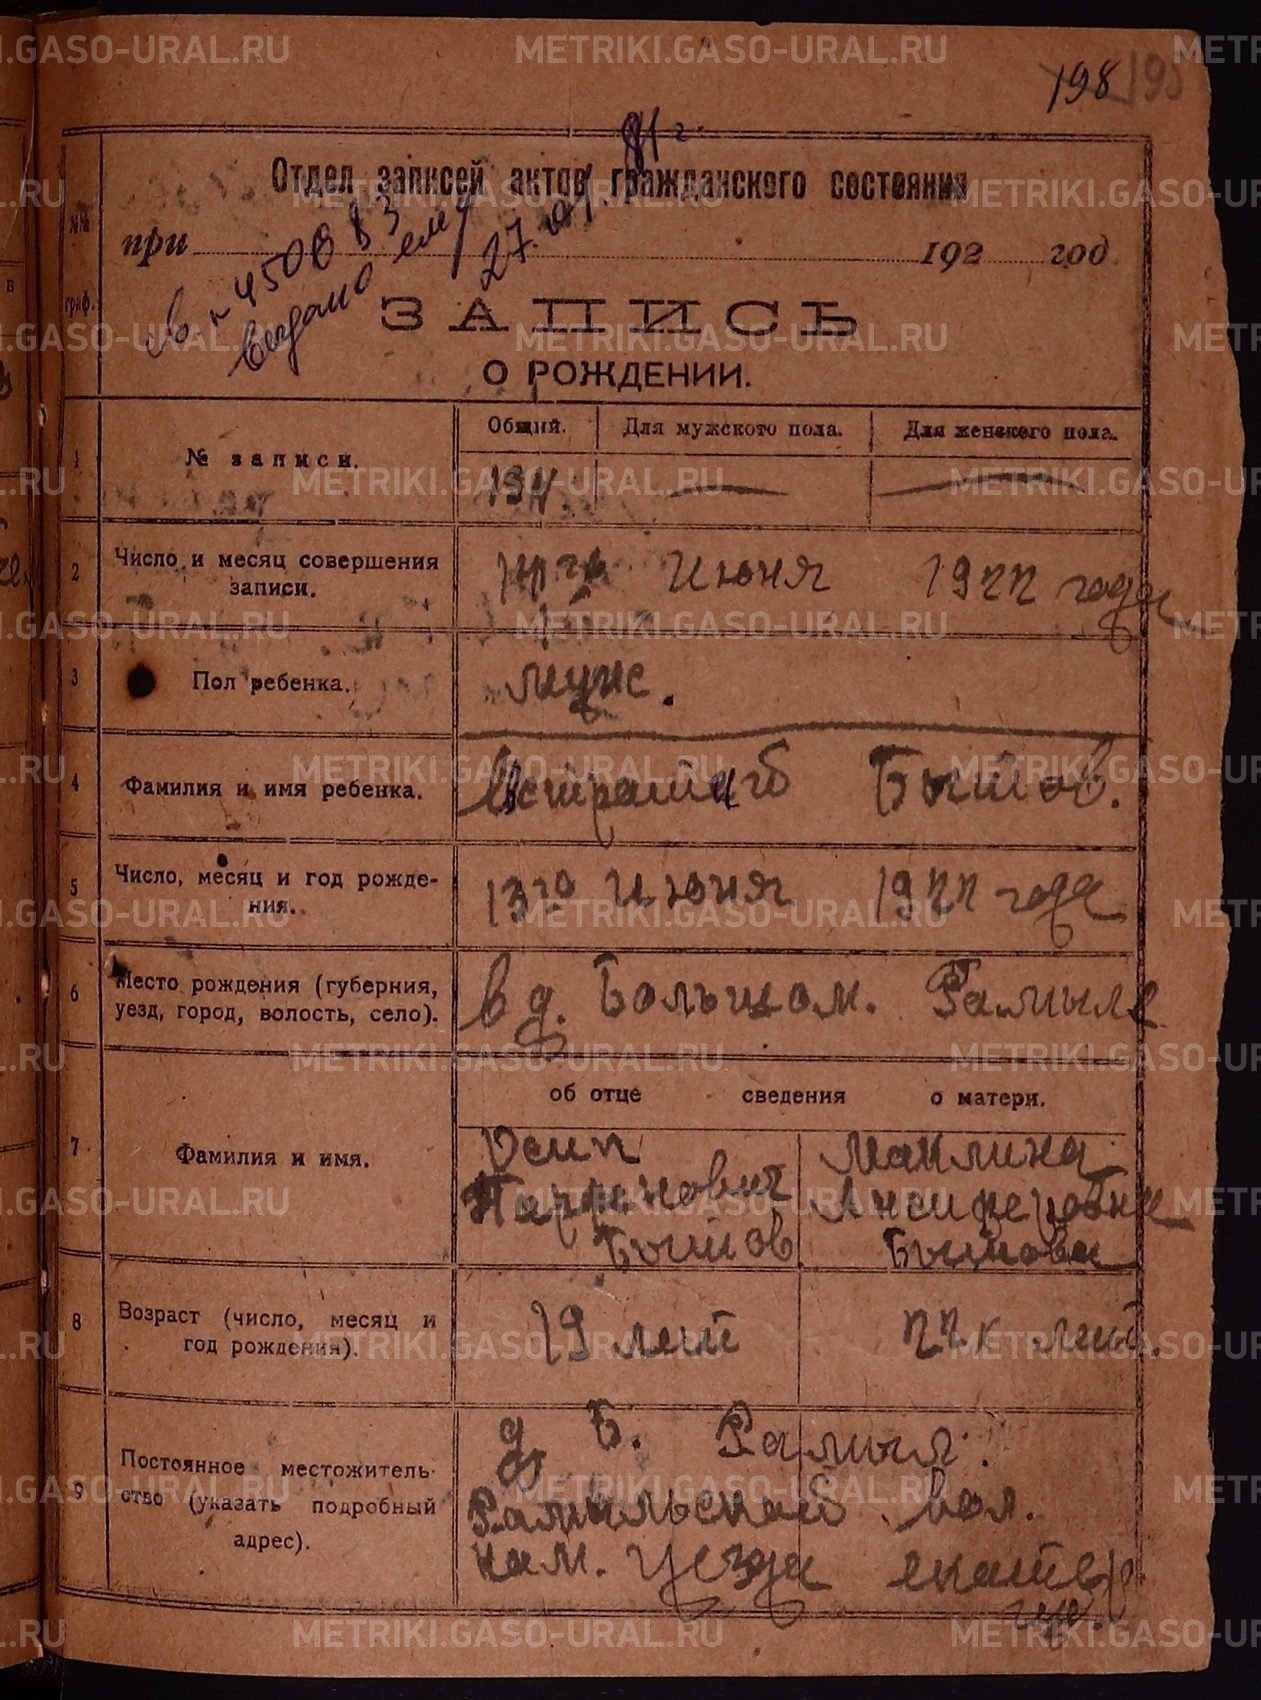 198 195
Отдел записей актов гражданского состояния
№№ граф.
при 192 год
св. № 450083
выдано ему
27. 81 г.
ЗАПИСЬ
О РОЖДЕНИИ.
1 № записи.
Общий. Для мужского пола. Для женского пола.
194
2 Число и месяц совершения записи.
го Июня 1922 года
3 Пол ребенка.
муж.
4 Фамилия и имя ребенка.
Бытов.
5 Число, месяц и год рождения.
13го Июня 1922 года
6 Место рождения (губерния, уезд, город, волость, село).
в д. Большом. Рамыле
об отце сведения о матери.
7 Фамилия и имя.
Осип
Парфенович
Бытов
Маклина
Ансиферовна
Бытова
8 Возраст (число, месяц и год рождения).
19 лет
22х лет.
9 Постоянное местожительство (указать подробный адрес).
д. Б. Рамыл.
Рамыльской вол.
кам. уезда екатер.
губ.
METRIKI.GASO-URAL.RU